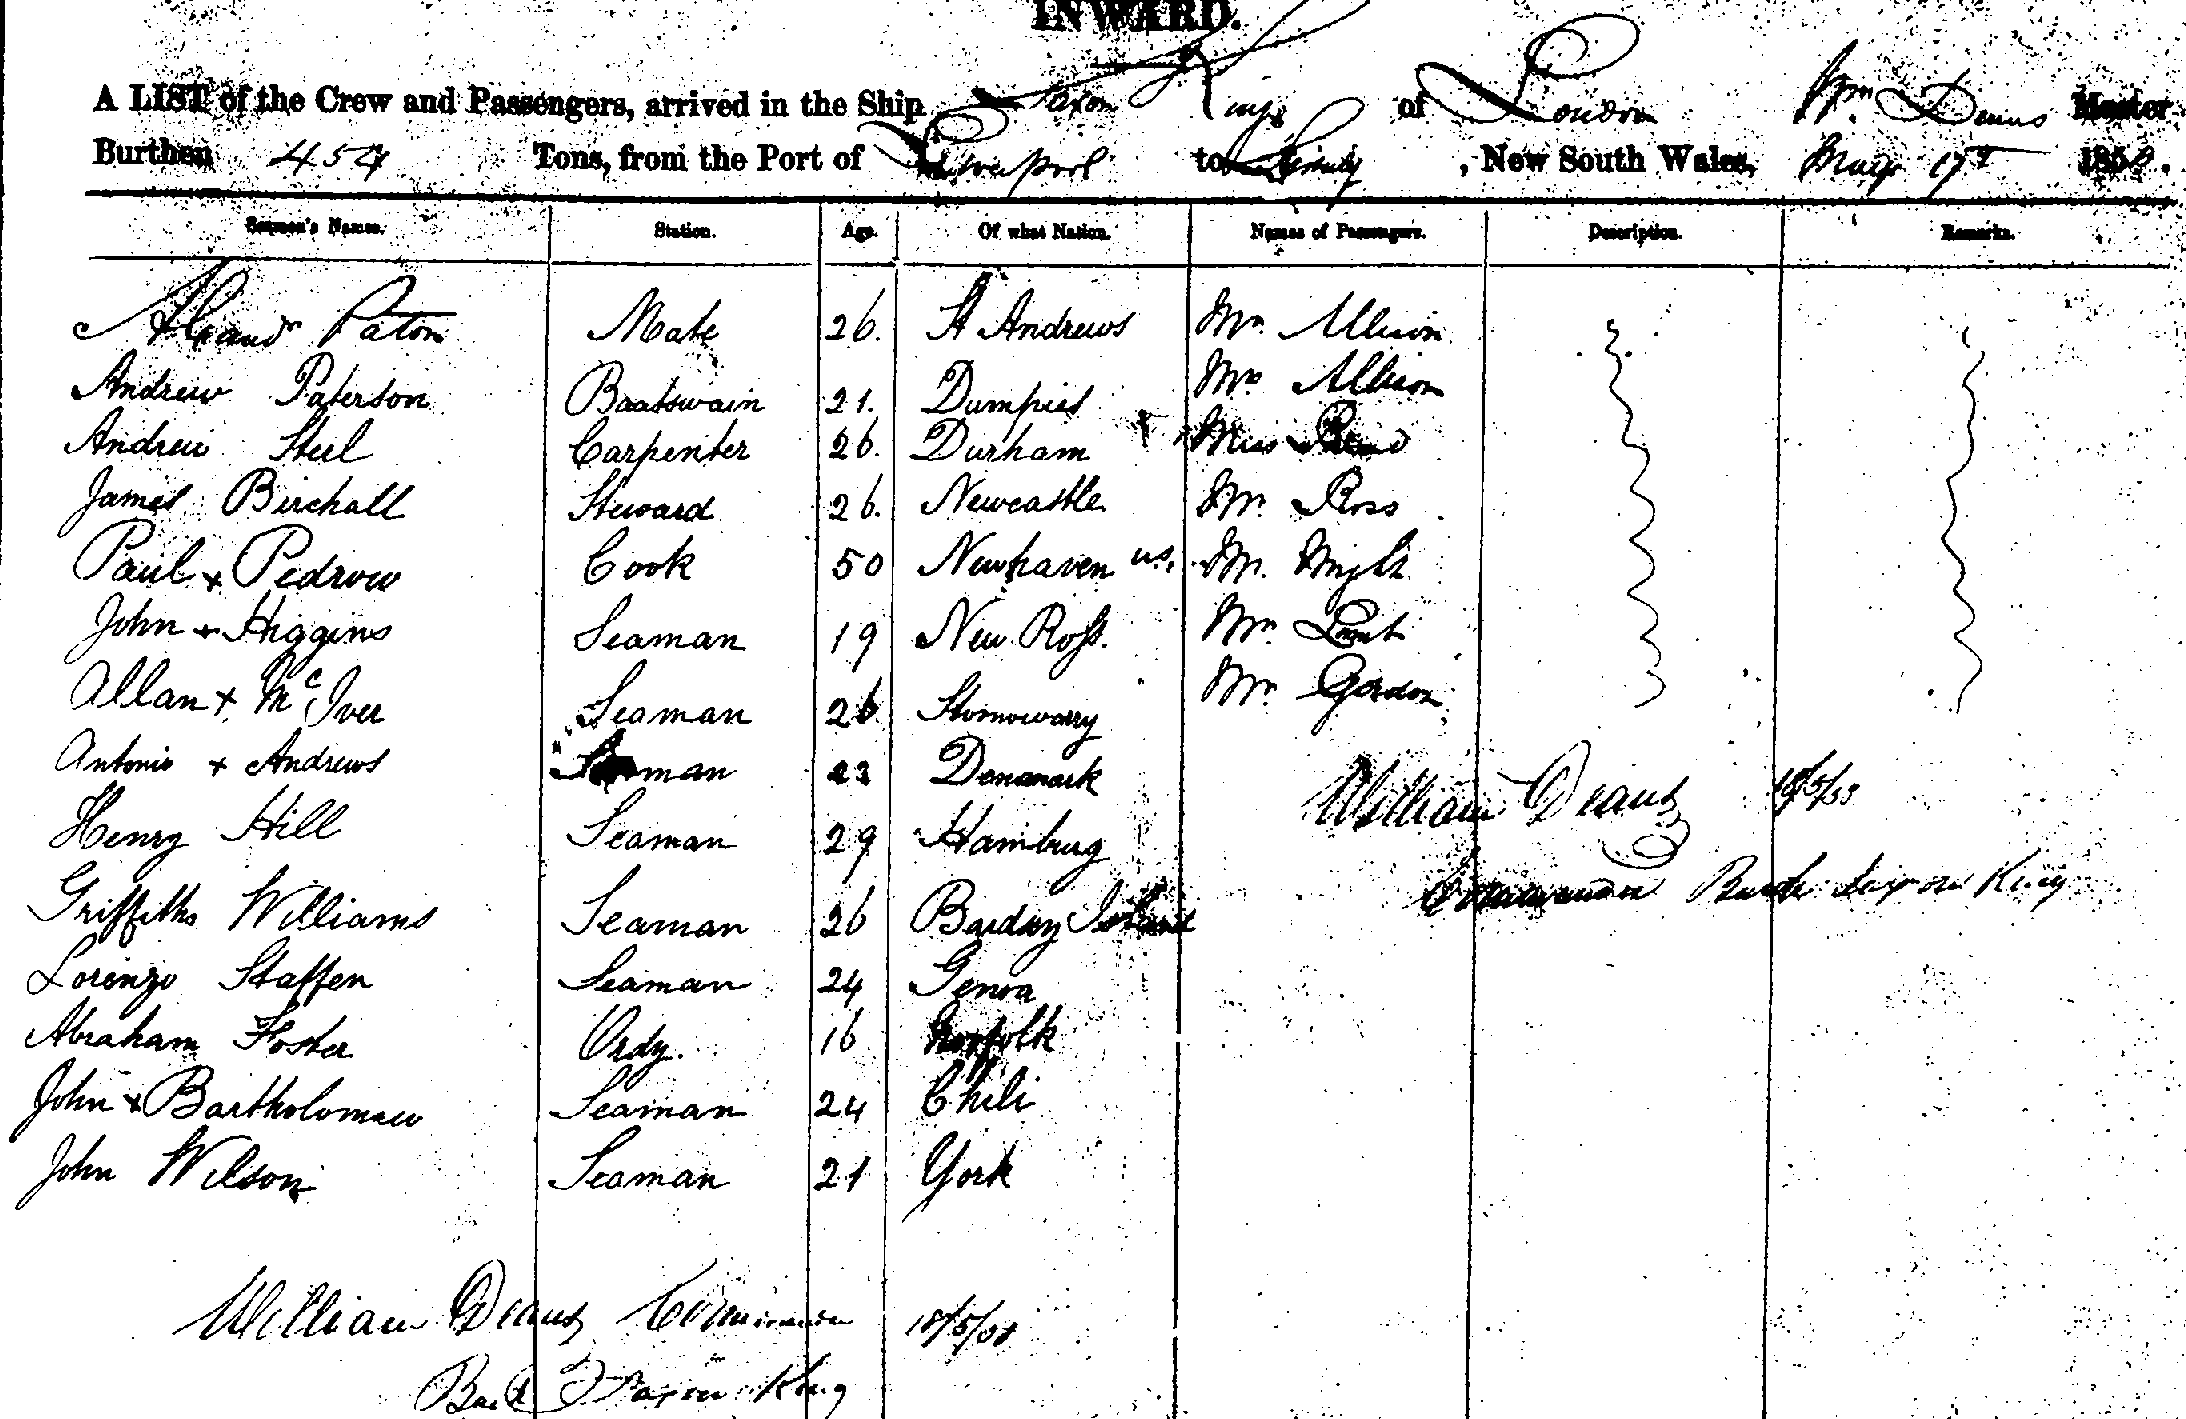 INWARD.
A LIST of the Crew and Passengers, arrived in the Ship Saxon King of London Wm. Deans Master
Burthen 454 Tons, from the Port of Liverpool to Sydney, New South Wales, May 17th 185
Seamen's Names. Station. Age. Of what Nation. Names of Passengers. Description. Remarks.
Paton Mate 26. St Andrews Mr. Allison
Andrew Paterson Boatswain 21. Dumfries Mrs Allison
Andrew Steel Carpenter 26. Durham Miss
James Birchall Steward 26. Newcastle Mr. Ross
Paul + Pedrow Cook 50 Newhaven us. Mr.
John + Higgins Seaman 19 New Ross. Mr.
Allan + McIver Seaman 26 Stornoway Mr. Gordon
Antonio + Andrews Seaman 23 Denmark
William Deans 18/5/58
Henry Hill Seaman 29 Hamburg
Commander Bark Saxon King
Griffiths Williams Seaman 26 Bardsey Island
Lorenzo Staffen Seaman 24 Genoa
Abraham Foster Ordy. 16 Norfolk
John + Bartholomew Seaman 24 Chili
John Wilson Seaman 21 York
William Deans Commander 18/5/58
Bark Saxon King